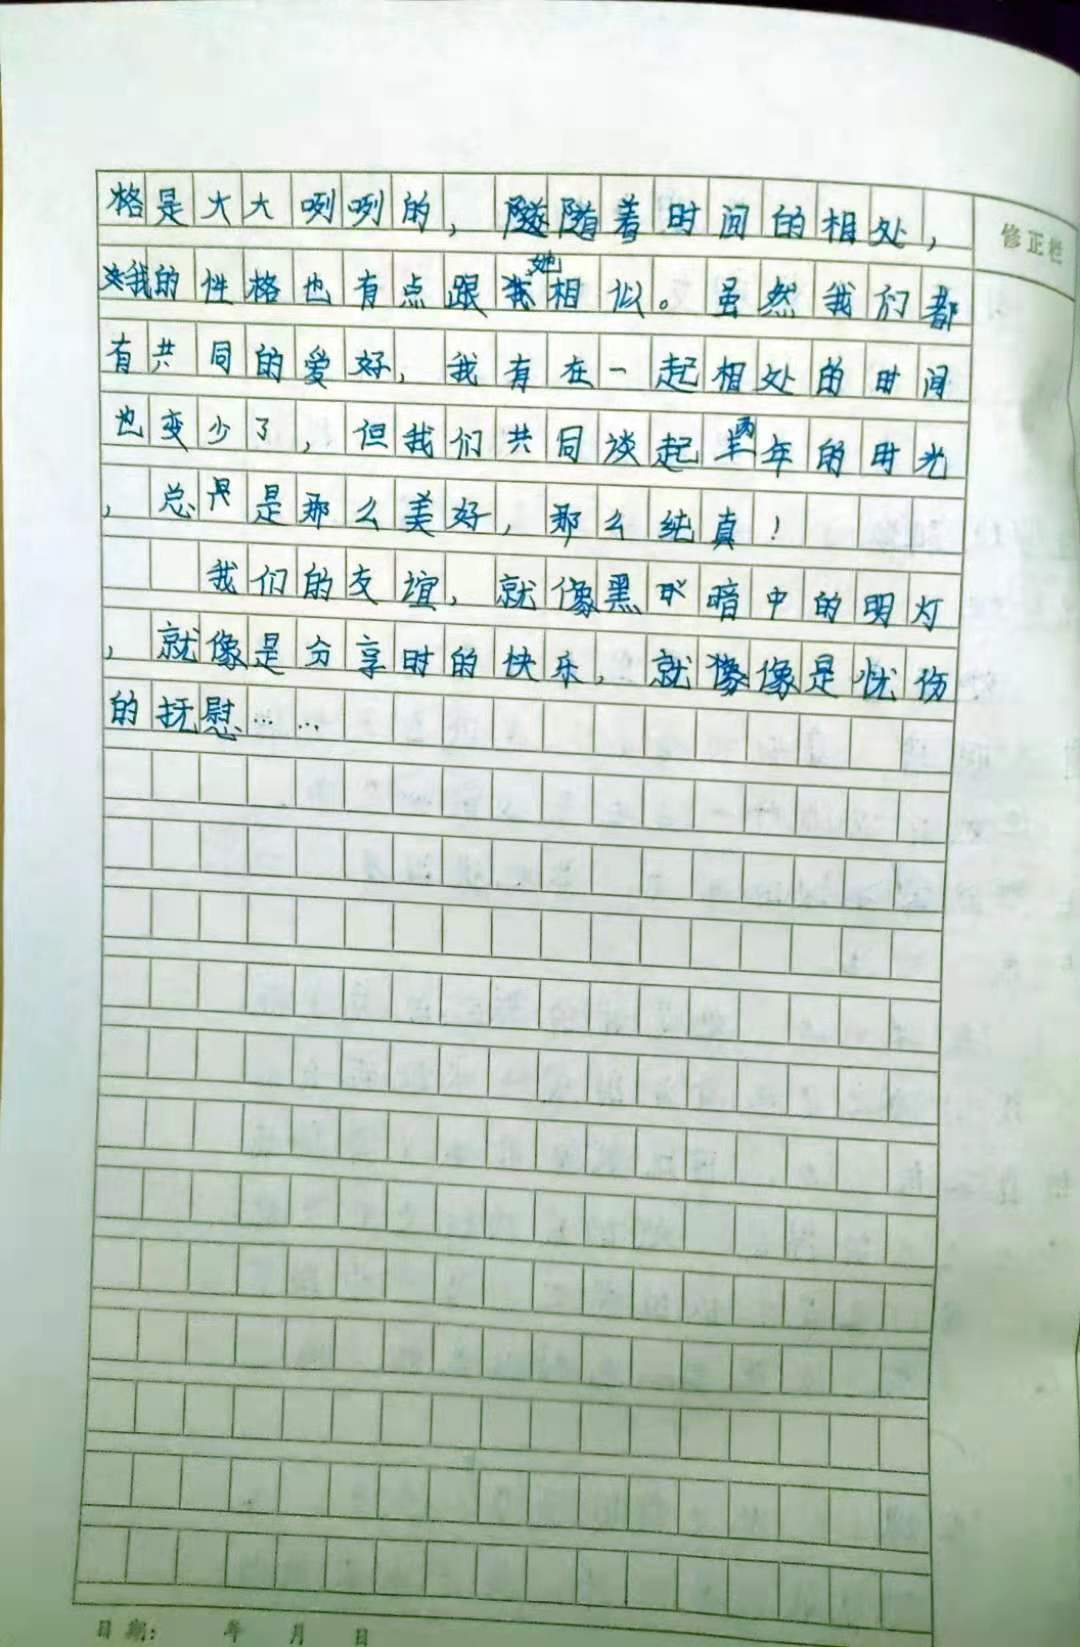 格是大大咧咧的，随着时间的相处，
修正栏
我的性格也有点跟她相似。虽然我们都
有共同的爱好，我有在一起相处的时间
也变少了，但我们共同谈起两年的时光
，总是那么美好，那么纯真！
我们的友谊，就像黑暗中的明灯
，就像是分享时的快乐，就像是忧伤
的抚慰……
日期： 年 月 日